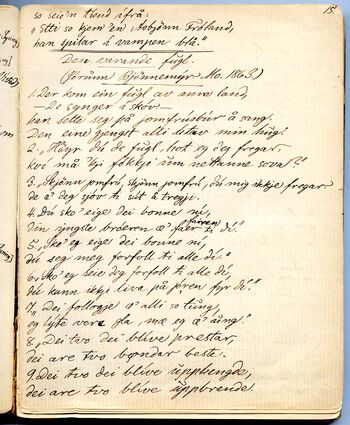 15.
so seie'n tiend ifrå:
"Etti so kjem 'en Aasbjönn Fröland,
han spitar i vampen blå."
Den varande fugl.
(Jorunn Bjönnemyr. Mo. 1863.)
1. Der kom ein fugl av anna land,
– De synger i skóv. –
han sette seg på jomfruburs å sang.
Den eine gjengst alli utav min hug.
2. "Höyr dú de fúgl, hot eg deg fregar
kvi må kji folkji um nettanne sova?"
3. "Skjönn jomfrú, skjönn jomfrú, dú mig ikkje fregar
de æ deg sjov ti sút å tregji.
4. Dú ska' eige dei bonne ni,
den yngste bróeren æ fairen ti dí."
5. "Ska' eg eige dei bonne ni,
dú seg meg forfoll ti alle dí."
6. "Ska' eg seie deg forfoll ti alle dí,
dú kann ikkji liva på jóren fyr dí."
7. "Dei follogje æ alli so tung,
eg lyte vere gla, mæ eg æ úng."
8. "Dei tvo dei blíve prestar,
dei are tvo bøndar beste.
9. Dei tvo dei blíve upphengde,
dei are tvo blíve uppbrende